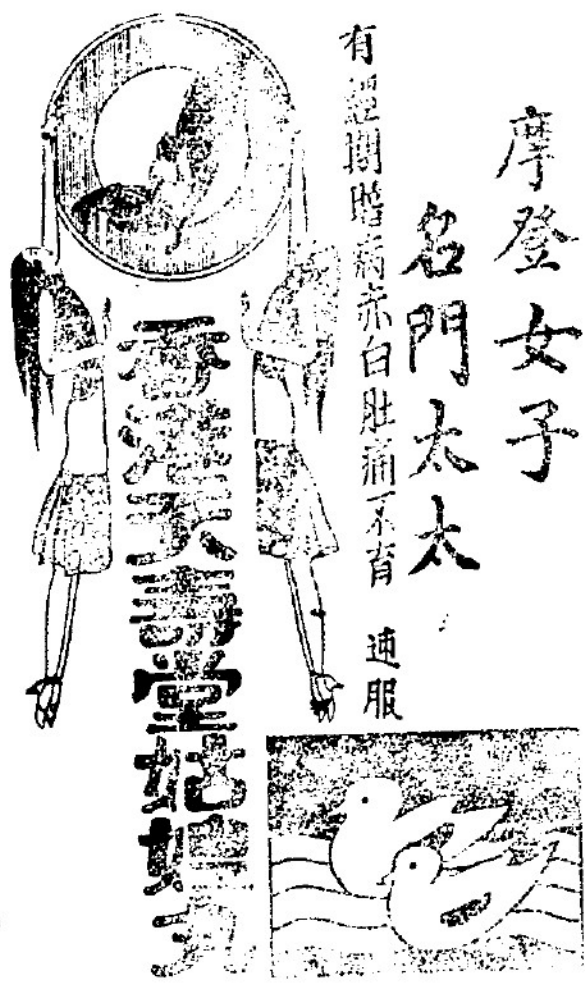 摩登女子
名門太太
有經期暗病赤白肚痛不育 速服
香港天壽堂姑嫂丸